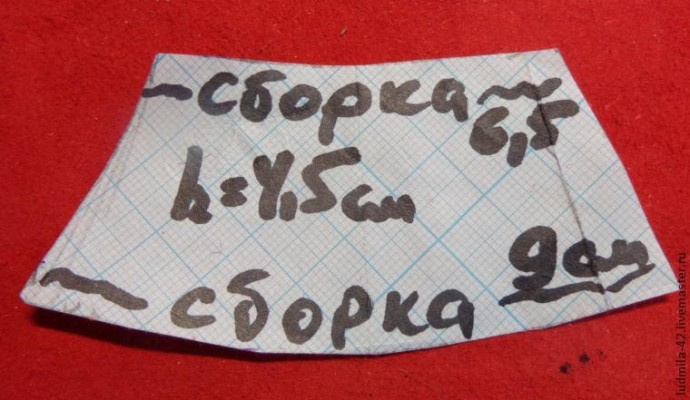 ~сборка~
6,5
h=4,5см
9см
— сборка
ludmila-42.livemaster.ru